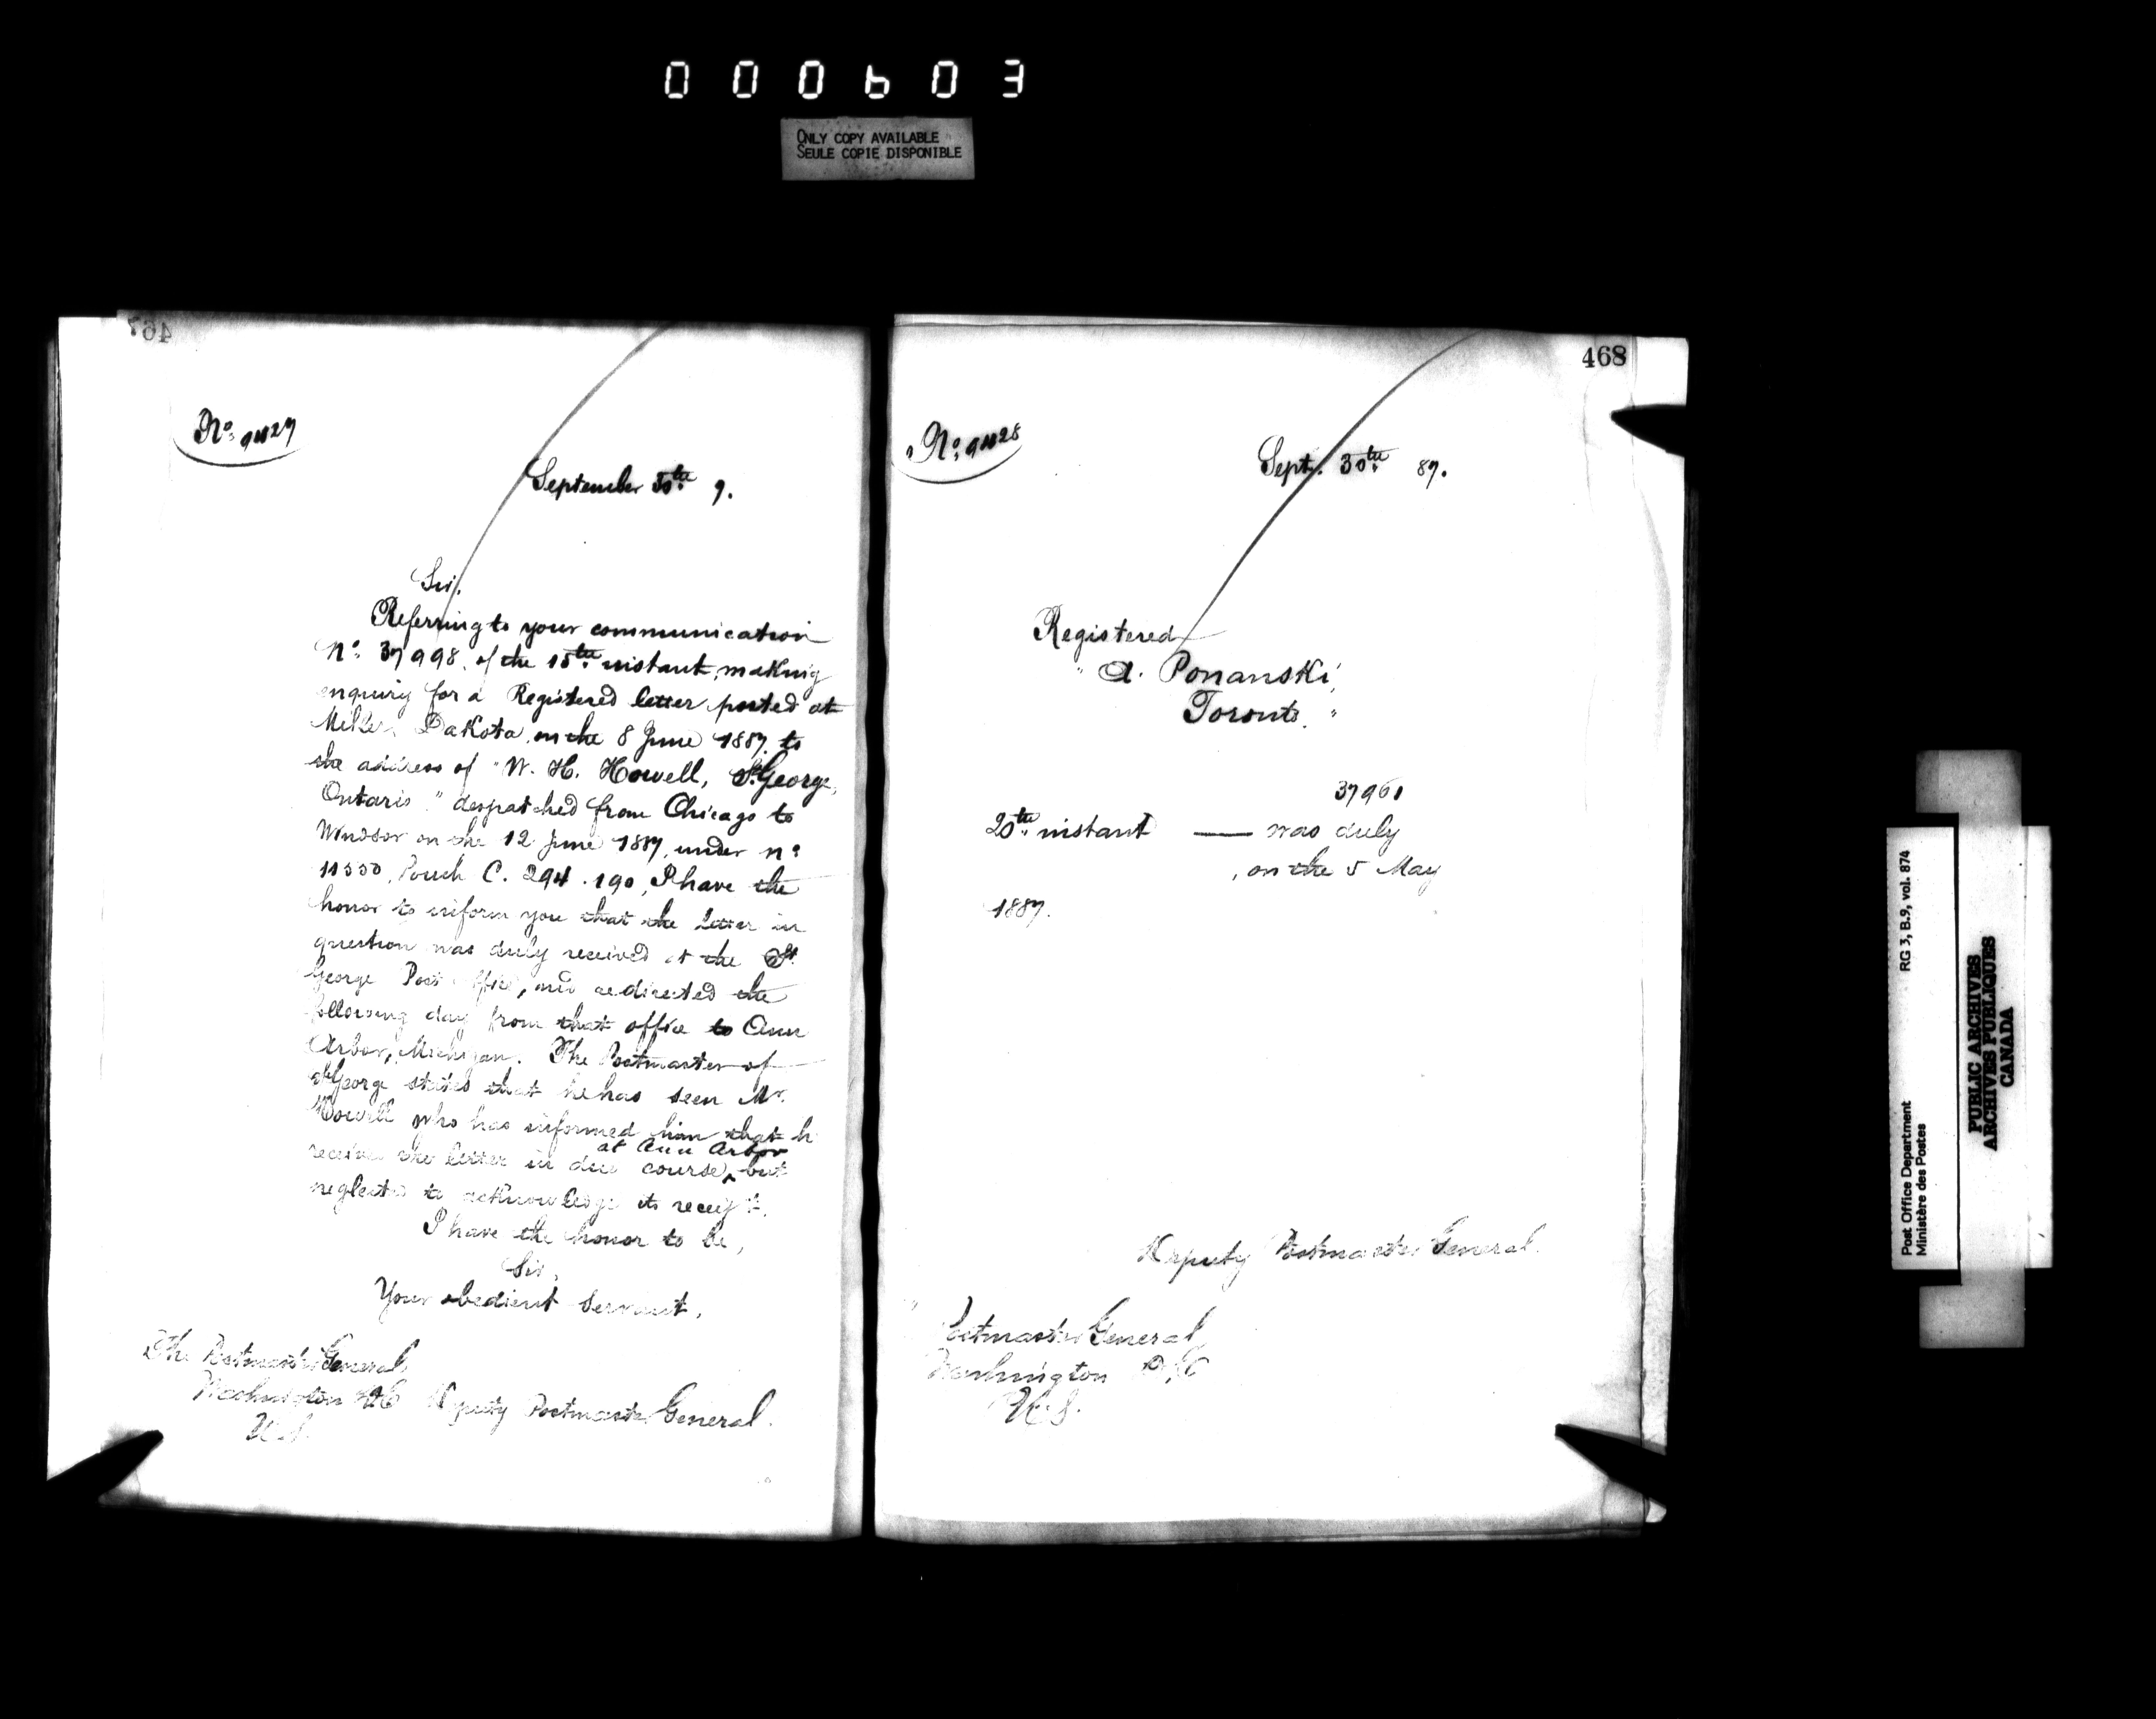 000603
ONLY COPY AVAILABLE
SEULE COPIE DISPONIBLE
467
No. 9427
September 30th 7.
Sir,
Referring to your communication
No. 37998, of the 15th instant, making
enquiry for a Registered letter posted at
Dakota, on the 8 June 1887, to
the address of "W. H. Howell, St. George,
Ontario," despatched from Chicago to
Windsor on the 12 June 1887, under No
11550, Pouch C. 294.190, I have the
honor to inform you that the letter in
question was duly received at the St.
George Post Office, and redirected the
following day from that office to Ann
Arbor, Michigan. The Postmaster of
St George states that he has seen Mr.
Howell who has informed him that he
at Ann Arbor
received the letter in due course, but
neglected to acknowledge its receipt.
I have the honor to be,
Sir,
Your obedient Servant,
The Postmaster General,
Washington D.C. Deputy Postmaster General.
U.S.
468
No. 9428
Sept. 30th 87.
Registered
" A. Ponanski,
Toronto. "
37961
20th instant — was duly
, on the 5 May
1887.
Deputy Postmaster General.
Postmaster General,
Washington D.C.
U.S.
Post Office Department RG 3, B.9, vol. 874
Ministère des Postes
PUBLIC ARCHIVES
ARCHIVES PUBLIQUES
CANADA